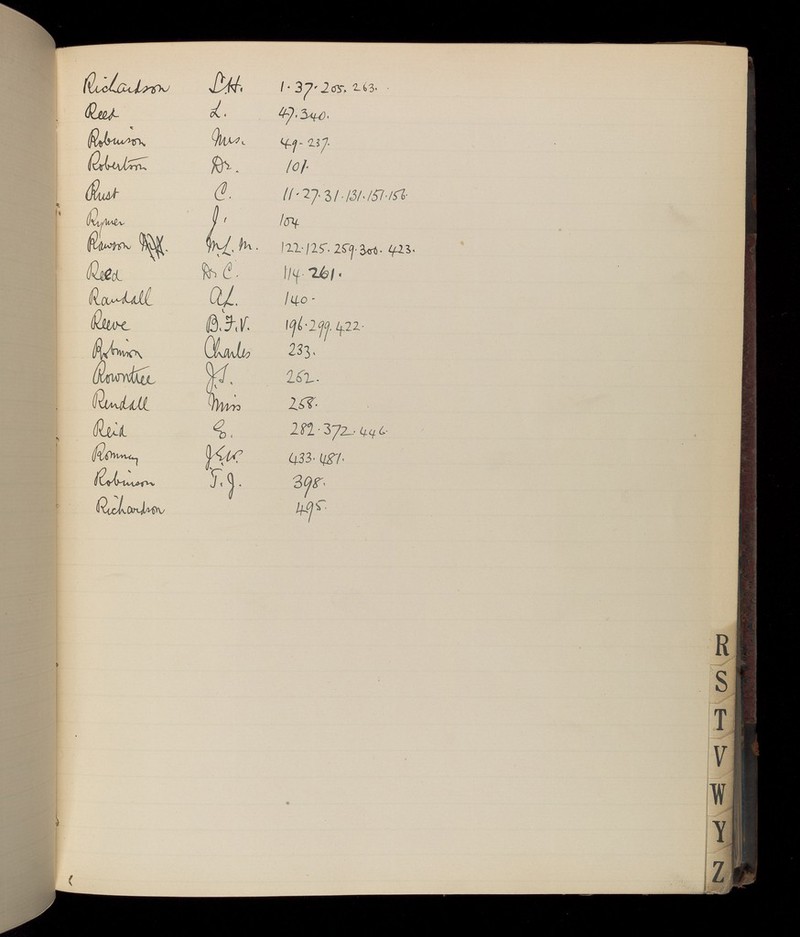 Richardson L.H. 1. 37. 205. 263.
Reed L. 47. 340.
Robinson Mrs. 49. 237.
Robertson Dr. 101.
Rust C. 11. 27. 31. 131. 151. 156.
Rymer J. 104
Rawson M.L.M. 122. 125. 259. 300. 423.
Reed Dr C. 114. 261.
Randall A.L. 140.
Reeve B.F.V. 196. 299. 422.
Robinson Charles 233.
Rowntree J.S. 262.
Rendall Miss 258.
Reid E. 282. 372. 446.
Romney J.E.W. 433. 487.
Robinson T.J. 398.
Richardson 495.
R
S
T
V
W
Y
Z